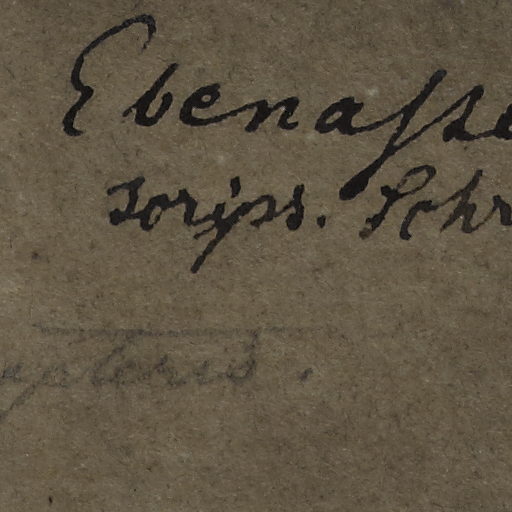 Ebenasse
scrips. Schr
ypteris.